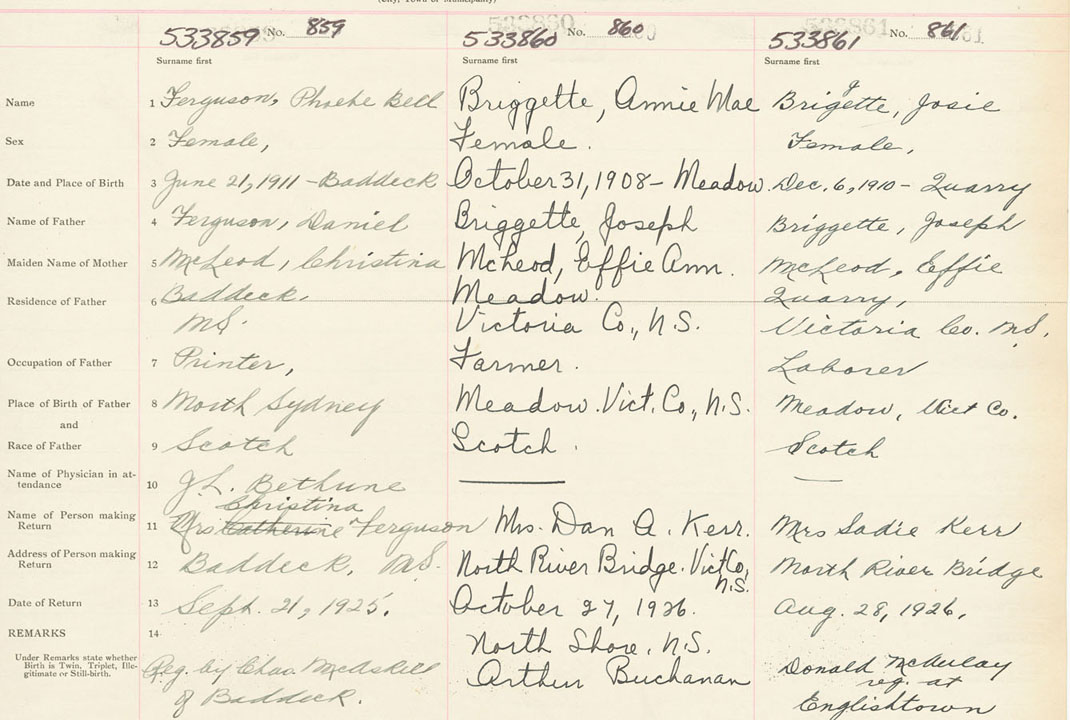 (City, Town or Municipality)
533859 No. 859 533860 No. 860 533861 No. 861
Surname first Surname first Surname first
Name 1 Ferguson, Phoebe Bell Briggette, Annie Mae Briggette, Josie
Sex 2 Female, Female. Female,
Date and Place of Birth 3 June 21, 1911 - Baddeck October 31, 1908 - Meadow. Dec. 6, 1910 - Quarry
Name of Father 4 Ferguson, Daniel Briggette, Joseph Briggette, Joseph
Maiden Name of Mother 5 McLeod, Christina McLeod, Effie Ann. McLeod, Effie
Residence of Father 6 Baddeck, Meadow. Quarry,
N.S. Victoria Co., N.S. Victoria Co. N.S.
Occupation of Father 7 Printer, Farmer. Laborer
Place of Birth of Father 8 North Sydney Meadow. Vict. Co., N.S. Meadow, Vict Co.
and
Race of Father 9 Scotch Scotch. Scotch
Name of Physician in at-
tendance 10 J.L. Bethune
Christina
Name of Person making
Return 11 Mrs Catherine Ferguson Mrs. Dan A. Kerr. Mrs Sadie Kerr
Address of Person making
Return 12 Baddeck, N.S. North River Bridge. Vict Co, North River Bridge
N.S.
Date of Return 13 Sept. 21, 1925. October 27, 1926. Aug. 28, 1926,
REMARKS 14 North Shore, N.S.
Under Remarks state whether
Birth is Twin, Triplet, Ille-
gitimate or Still-birth.
Reg. by Chas McAskill Arthur Buchanan Donald McAulay
of Baddeck. reg. at
Englishtown